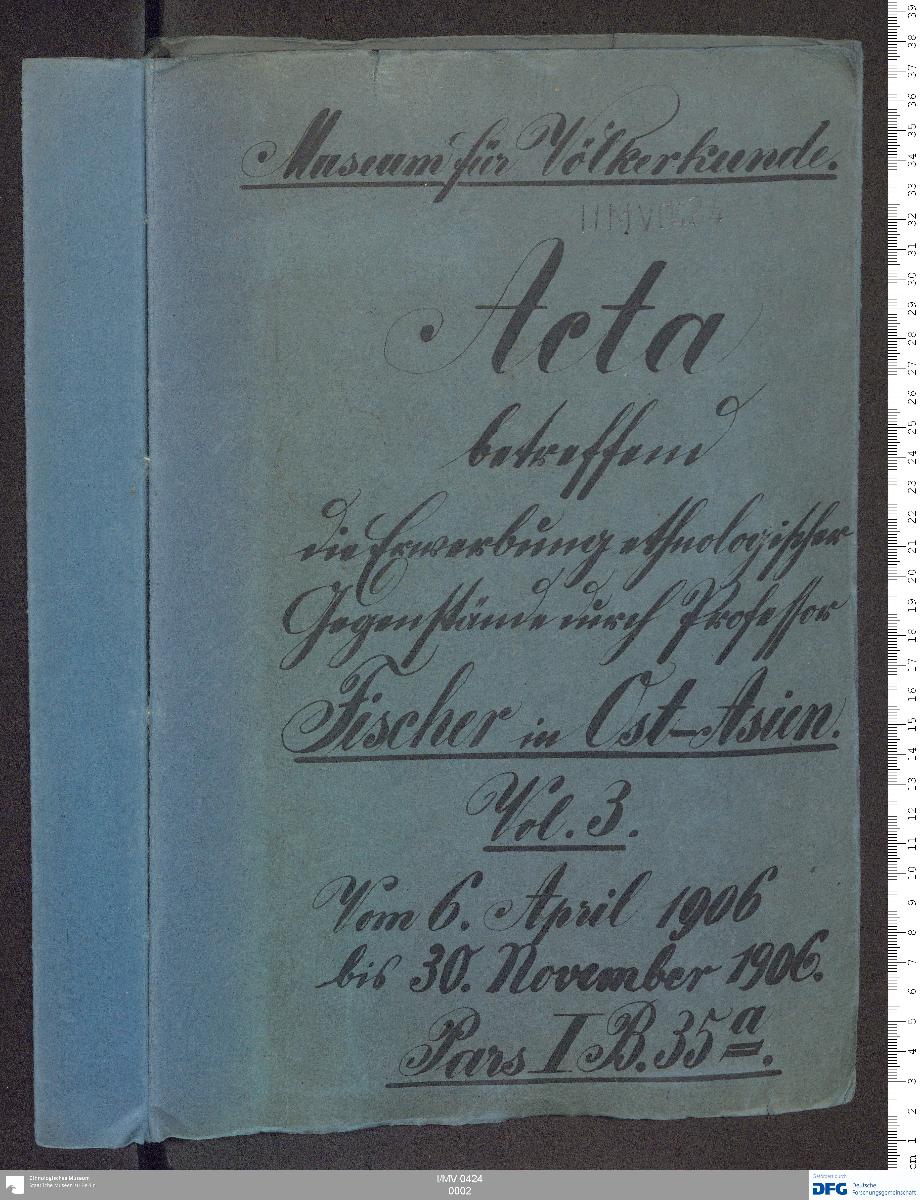 Museum für Völkerkunde.
I/MV 0424
Acta
betreffend
die Erwerbung ethnologischer
Gegenstände durch Professor
Fischer in Ost-Asien.
Vol. 3.
Vom 6. April 1906
bis 30. November 1906.
Pars I B. 35 a.
39
38
37
36
35
34
33
32
31
30
29
28
27
26
25
24
23
22
21
20
19
18
17
16
15
14
13
12
11
10
9
8
7
6
5
4
3
2
1
cm
Ethnologisches Museum
Staatliche Museen zu Berlin
I/MV 0424
0002
Gefördert durch
DFG Deutsche
Forschungsgemeinschaft